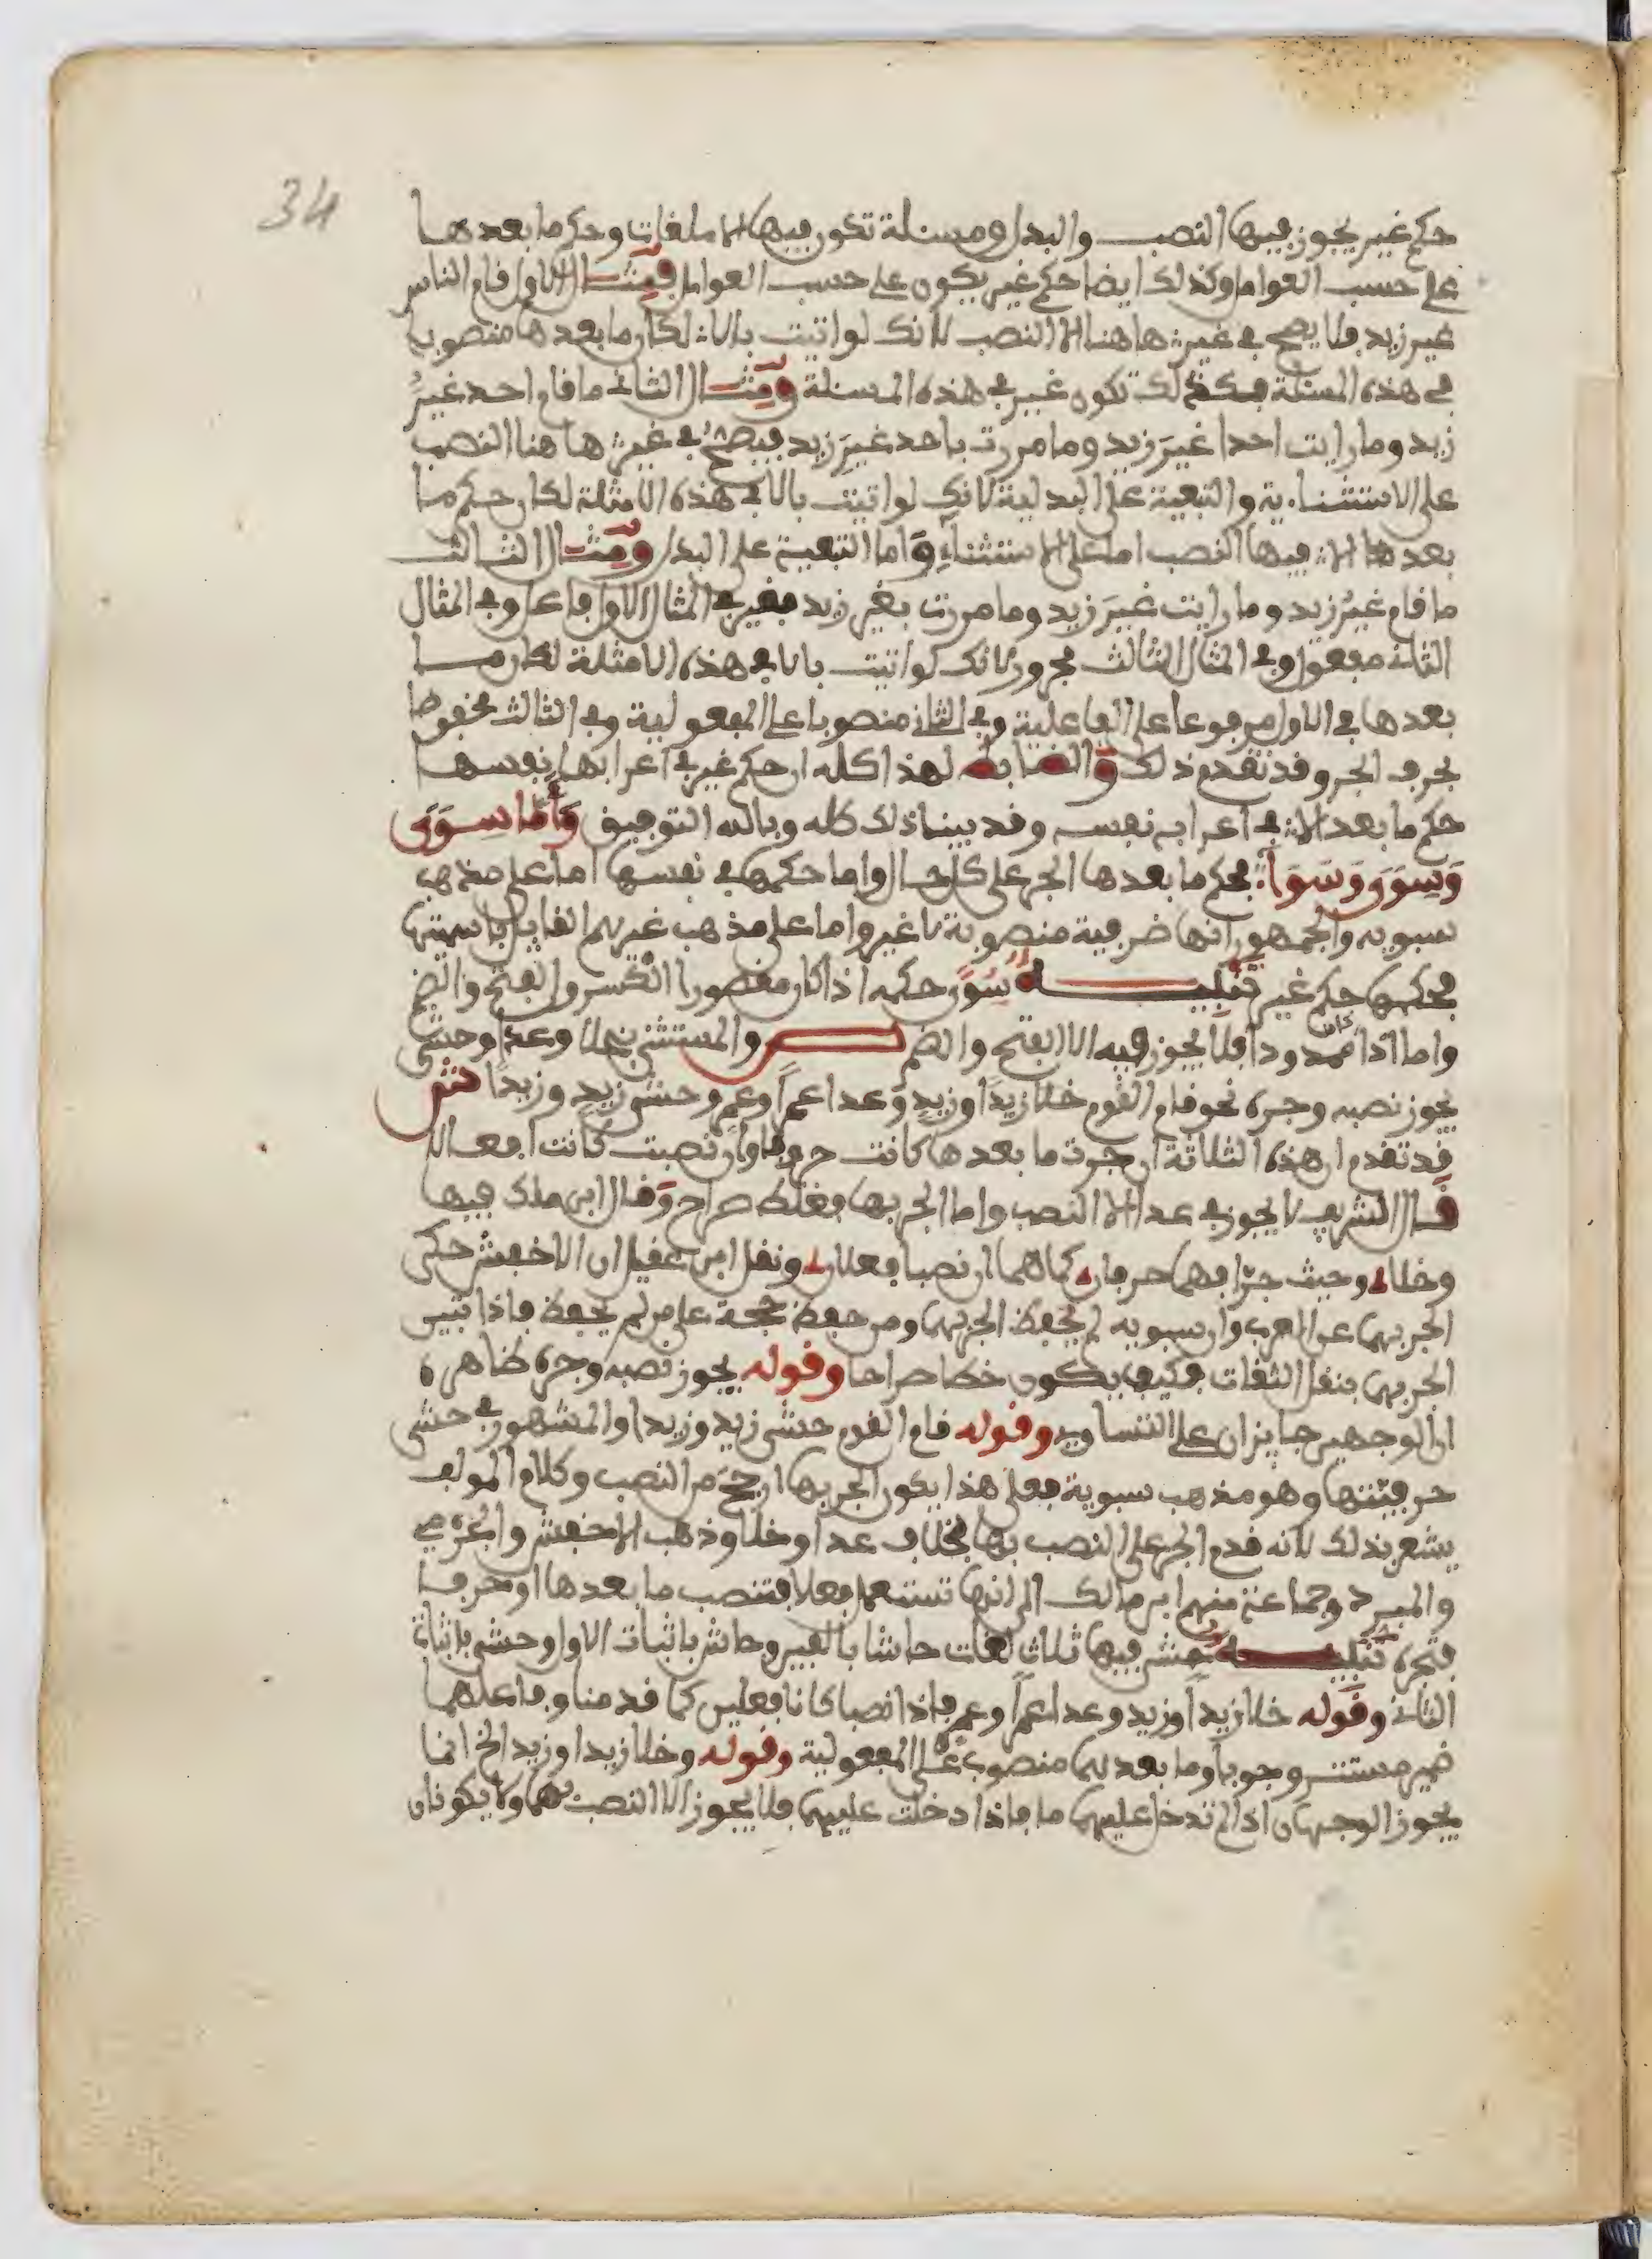 34
حكم غير يجوز فيها النصب والبدل ومسئلة تكون فيها الا ملغات وحكم ما بعدها
على حسب العوامل وكذلك ايضا حكم غير يكون على حسب العوامل فمثال الاول قام الناس
غير زيد فلا يصح في غير هاهنا الا النصب لانك لو اتيت بالا لكان ما بعدها منصوبا
في هذه المسئلة فكذلك تكون غير في هذه المسئلة ومثال الثاني ما قام احد غيرُ
زيد وما رايت احدا غيرَ زيد وما مررت باحد غيرِ زيد فيصح في غير هاهنا النصب
على الاستثناية والتبعية على البدلية لانك لو اتيت بالا في هذه الامثلة لكان حكم ما
بعدها فيها النصب اما على الاستثناء واما التبعية على البدل ومثال الثالث
ما قام غيرُ زيد وما رايت غيرَ زيد وما مررت بغير زيد فغير في المثال الاول فاعل وفي المثال
الثاني مفعول وفي المثال الثالث مجرور لانك لو اتيت بالا في هذه الامثلة لكان ما
بعدها في الاول مرفوعا على الفاعلية وفي الثاني منصوبا على المفعولية وفي الثالث مخفوضا
بحرف الجر وقد تقدم ذلك والضابط لهذا كله ان حكم غير في اعرابها نفسها
حكم ما بعد الا في اعرابه نفسه وقد بينا ذلك كله وبالله التوفيق وَأَمَّا سِوَى
وَسِوَى وَسَوَاء فحكم ما بعدها الجر على كل حال واما حكمها في نفسها اما على مذهب
سبويه والجمهور انها ضرفية منصوبة لا غير واما على مذهب غيرهم القايل باسميتها
فحكمها حكم غير تنبيه سُوى حكمه اذا كان مقصورا الكسر والفتح والضم
واما اذا كان ممدودا فلا يجوز فيه الا الفتح والضم ص والمستثنى بخلا وعدا وحشى
يجوز نصبه وجره نحو قام القوم خلا زيدًا وزيدٍ وعدا عمرًا وعمرٍو وحشى زيدٍ وزيدًا ش
قد تقدم ان هذه الثلاثة ان جرت ما بعدها كانت حروفا وان نصبت كانت افعالا
قال الشريف لا يجوز في عدا الا النصب واما الجر بها فغلط صراح وقال ابن ملك فيها
وخلا وحيث جرّا فهما حرفان كما هما ان نصبا فعلان ونقل ابن عقيل ان الاخفش حكى
الجر بهما عن العرب وان سبويه لم يحفظ الجر بهما ومن حفظ حجة على من لم يحفظ فاذا تبين
الجر بهما بنقل الثقات فكيف يكون خطا صراحا وقوله يجوز نصبه وجره ظاهره
ان الوجهين جايزان على التساوي وقوله قام القوم حشى زيد وزيدا والمشهور في حشى
حرفيتها وهو مذهب سبوية فعلى هذا يكون الجر بها ارجح من النصب وكلام المولف
يشعر بذلك لانه قدم الجر على النصب بها بخلاف عدا وخلا وذهب الاخفش والجرمي
والمبرد وجماعة منهم ابن مالك الى انها تستعمل فعلا فتنصب ما بعدها او حرفا
فتجره تنبيه حشى فيها ثلاث لغات حاشا بالفين وحاش باثبات الاول وحشى باثبات
الثاني وقوله خلا زيداً وزيد وعدا عمراً وعمر فاذا نصبا كانا فعلين كما قدمنا وفاعلهما
ضمير مستتر وجوبا وما بعدهما منصوب على المفعولية وقوله وخلا زيدا وزيد الخ انما
يجوز الوجهان اذا لم تدخل عليهما ما فاذا دخلت عليهما فلا يجوز الا النصب بهما ولا يكونان